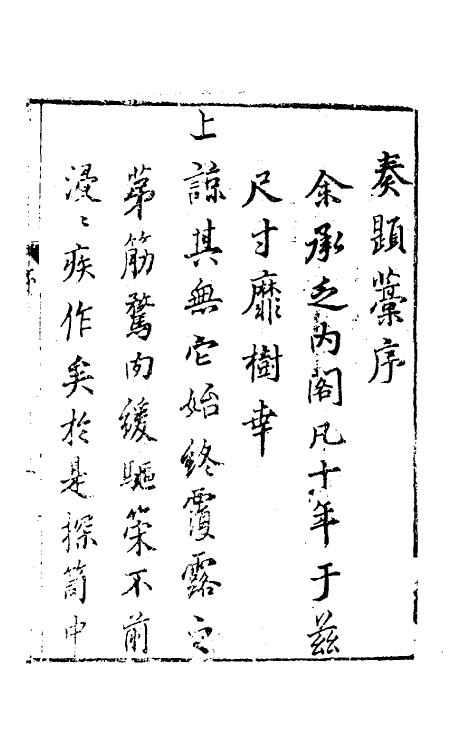 奏題藁序
余承乏內閣凡十年于茲
尺寸靡樹幸
上諒其無它始終覆露之
第筋骛肉緩驅策不前
浸〻疾作矣於是探笥中